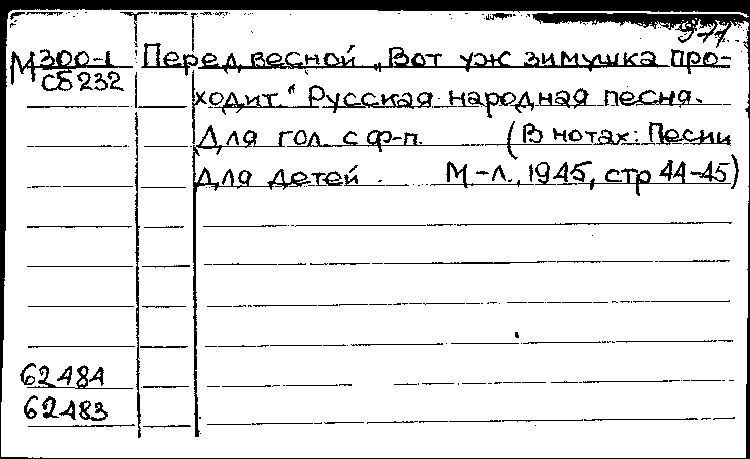 9-11
М 300-1 Перед весной „Вот уж зимушка про-
сб 232
ходит." Русская народная песня.
Для гол. с ф-п. (В нотах: Песни
для детей. М.-Л., 1945, стр 44-45)
62484
62483